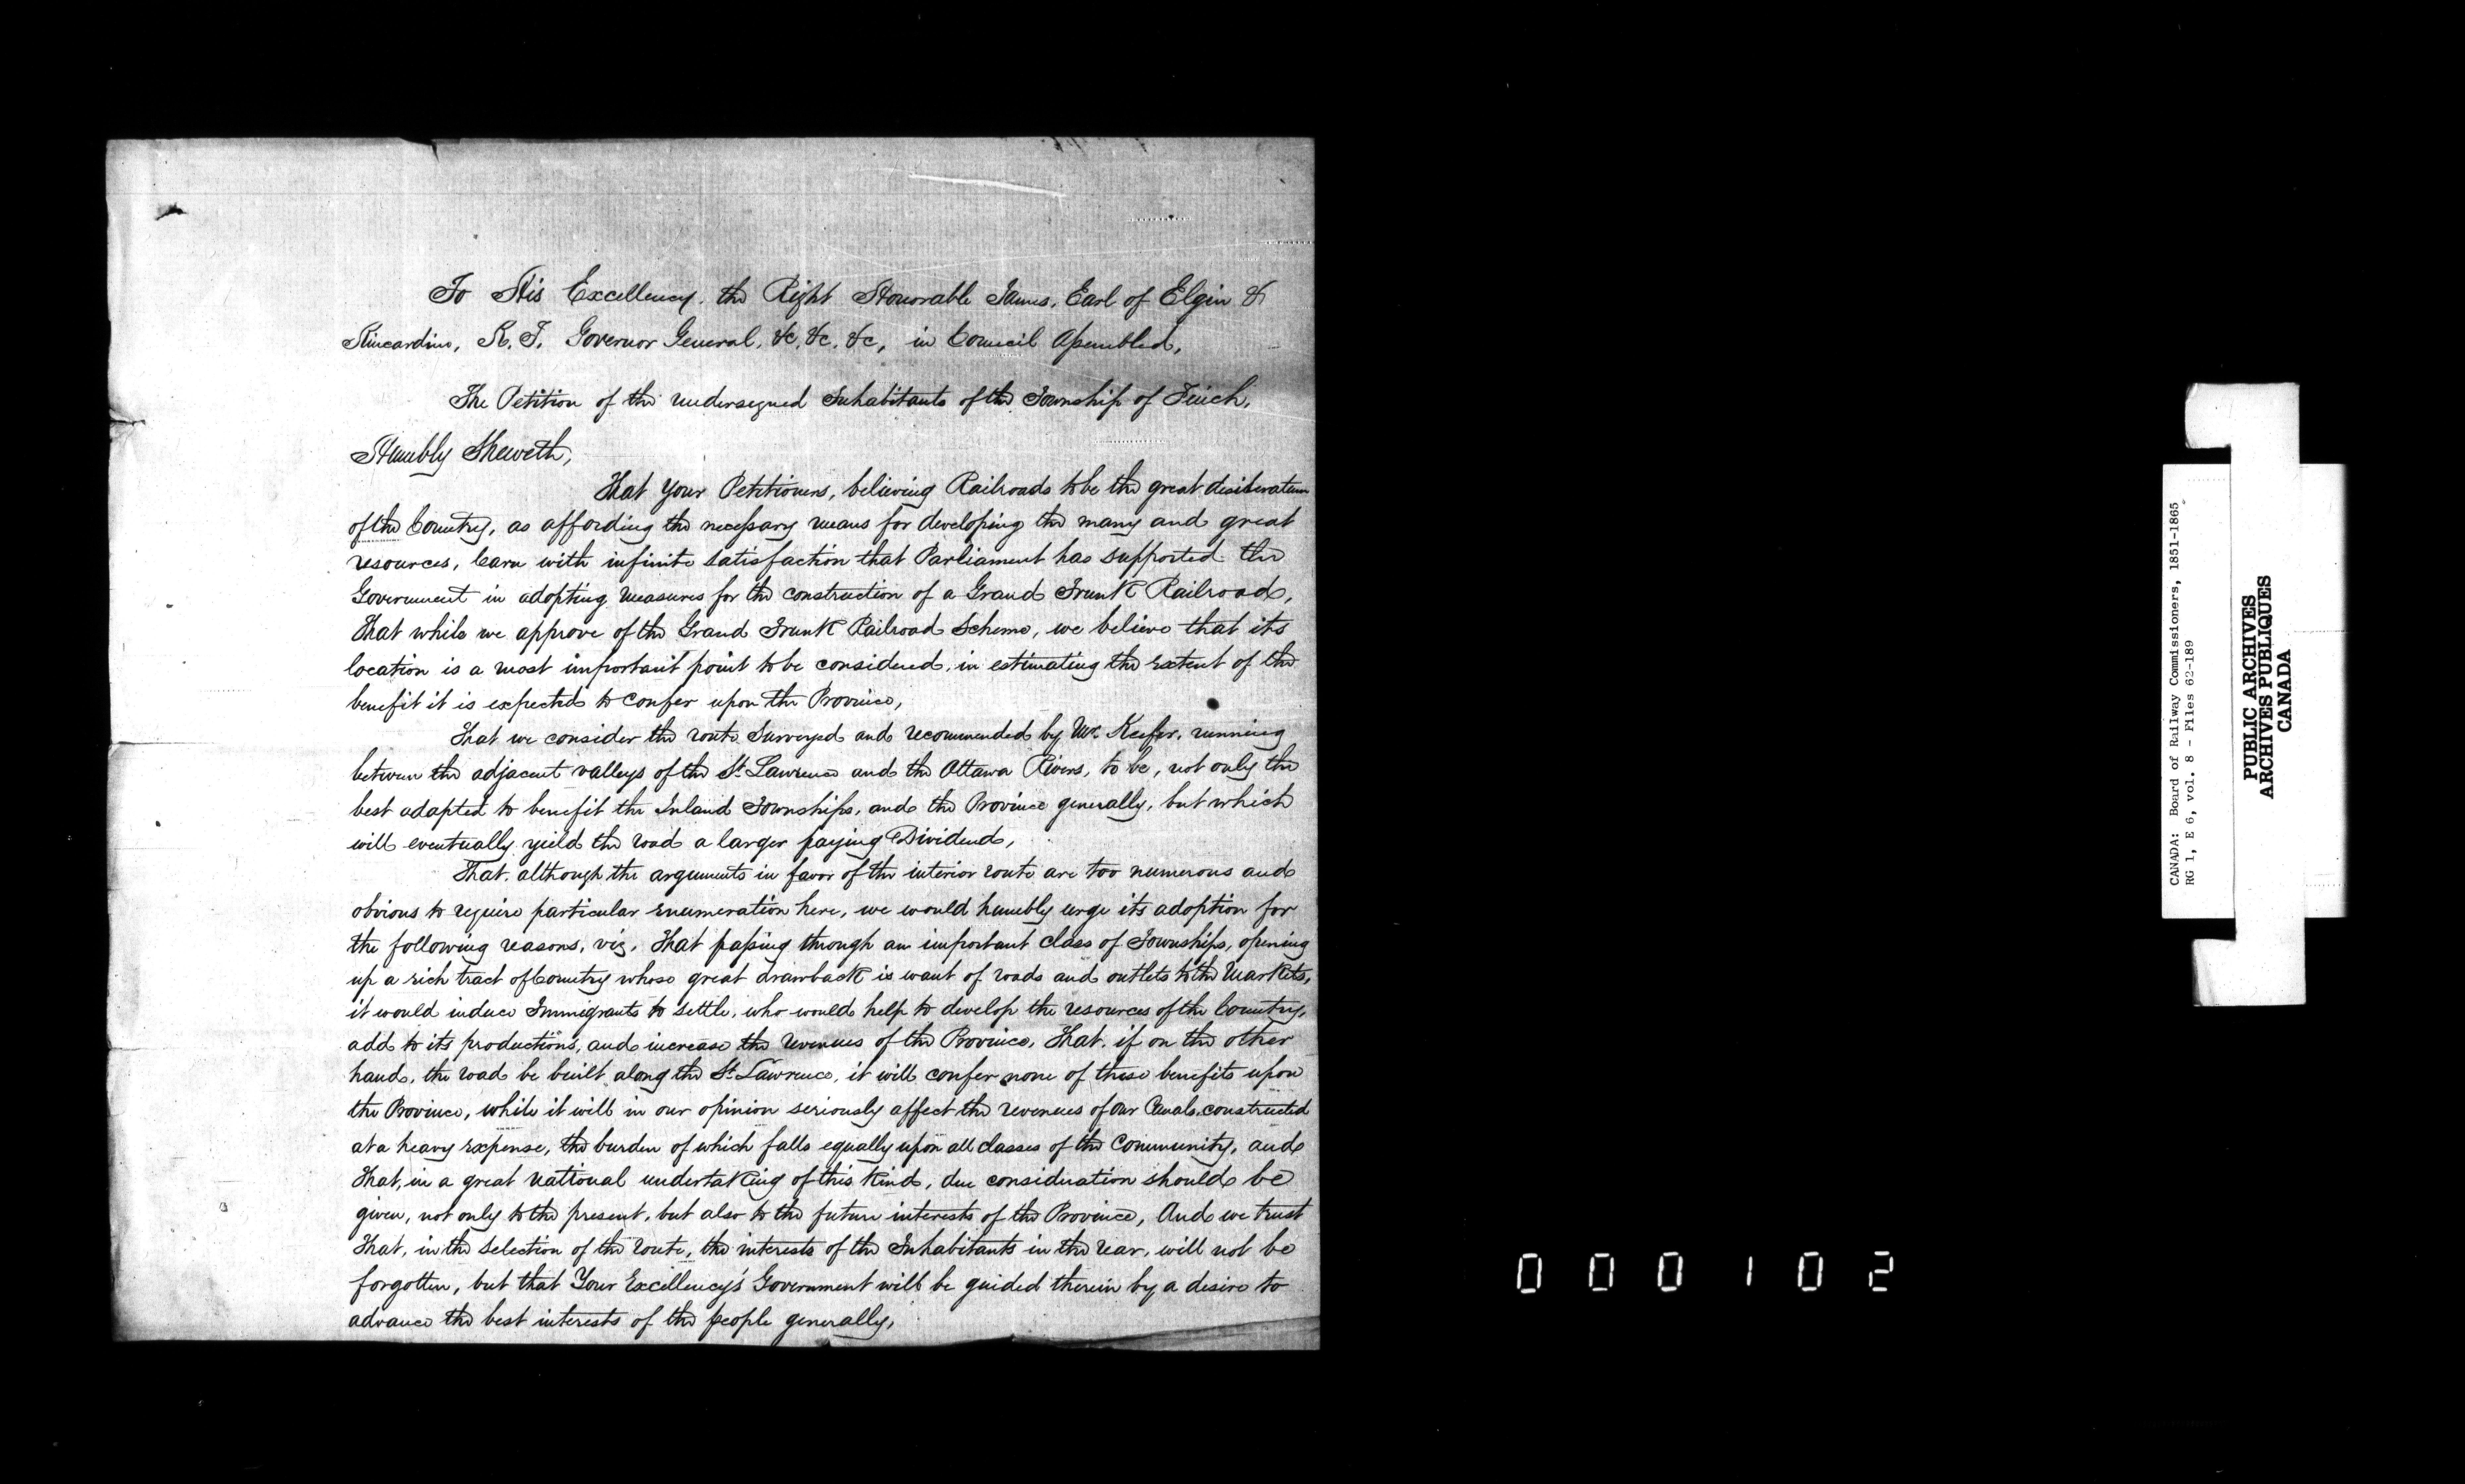 To His Excellency. the Right Honorable James, Earl of Elgin &
Kincardine, K. T. Governor General, &c, &c, &c, in Council Assembled,
The Petition of the undersigned Inhabitants of the Township of Finch,
Humbly Sheweth,
That Your Petitioners, believing Railroads to be the great desideratum
of the Country, as affording the necessary means for developing the many and great
resources, learn with infinite satisfaction that Parliament has supported the
Government in adopting measures for the construction of a Grand Trunk Railroad,
That while we approve of the Grand Trunk Railroad Scheme, we believe that its
location is a most important point to be considered, in estimating the extent of the
benefit it is expected to confer upon the Province,
That we consider the route Surveyed and recommended by Mr. Keefer, running
between the adjacent valleys of the St. Lawrence and the Ottawa Rivers, to be, not only the
best adapted to benefit the Inland Townships, and the Province generally, but which
will eventually yield the road a larger paying Dividend,
That, although the arguments in favor of the interior route are too numerous and
obvious to require particular enumeration here, we would humbly urge its adoption for
the following reasons, viz, That passing through an important class of Townships, opening
up a rich tract of Country whose great drawback is want of roads and outlets to the Markets,
it would induce Immigrants to settle, who would help to develop the resources of the Country,
add to its productions, and increase the revenues of the Province, That, if on the other
hand, the road be built along the St. Lawrence, it will confer none of these benefits upon
the Province, while it will in our opinion seriously affect the revenues of our Canals, constructed
at a heavy expense, the burden of which falls equally upon all classes of the Community, and
That, in a great National undertaking of this kind, due consideration should be
given, not only to the present, but also to the future interests of the Province, And we trust
That, in the selection of the route, the interests of the Inhabitants in the rear, will not be
forgotten, but that Your Excellency's Government will be guided therein by a desire to
advance the best interests of the people generally,
000102
CANADA: Board of Railway Commissioners, 1851-1865
RG 1, E 6, vol. 8 - Files 62-189
PUBLIC ARCHIVES
ARCHIVES PUBLIQUES
CANADA